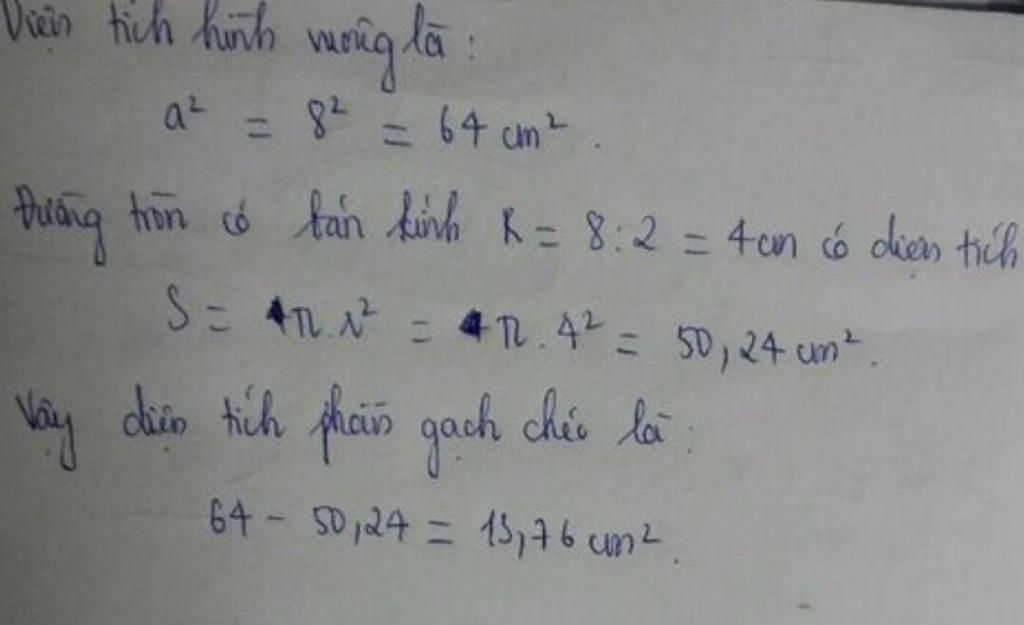 Diện tích hình vuông là:
a² = 8² = 64 cm².
Đường tròn có bán kính R = 8:2 = 4cm có diện tích
S = π.r² = π.4² = 50,24 cm².
Vậy diện tích phần gạch chéo là:
64 - 50,24 = 13,76 cm².